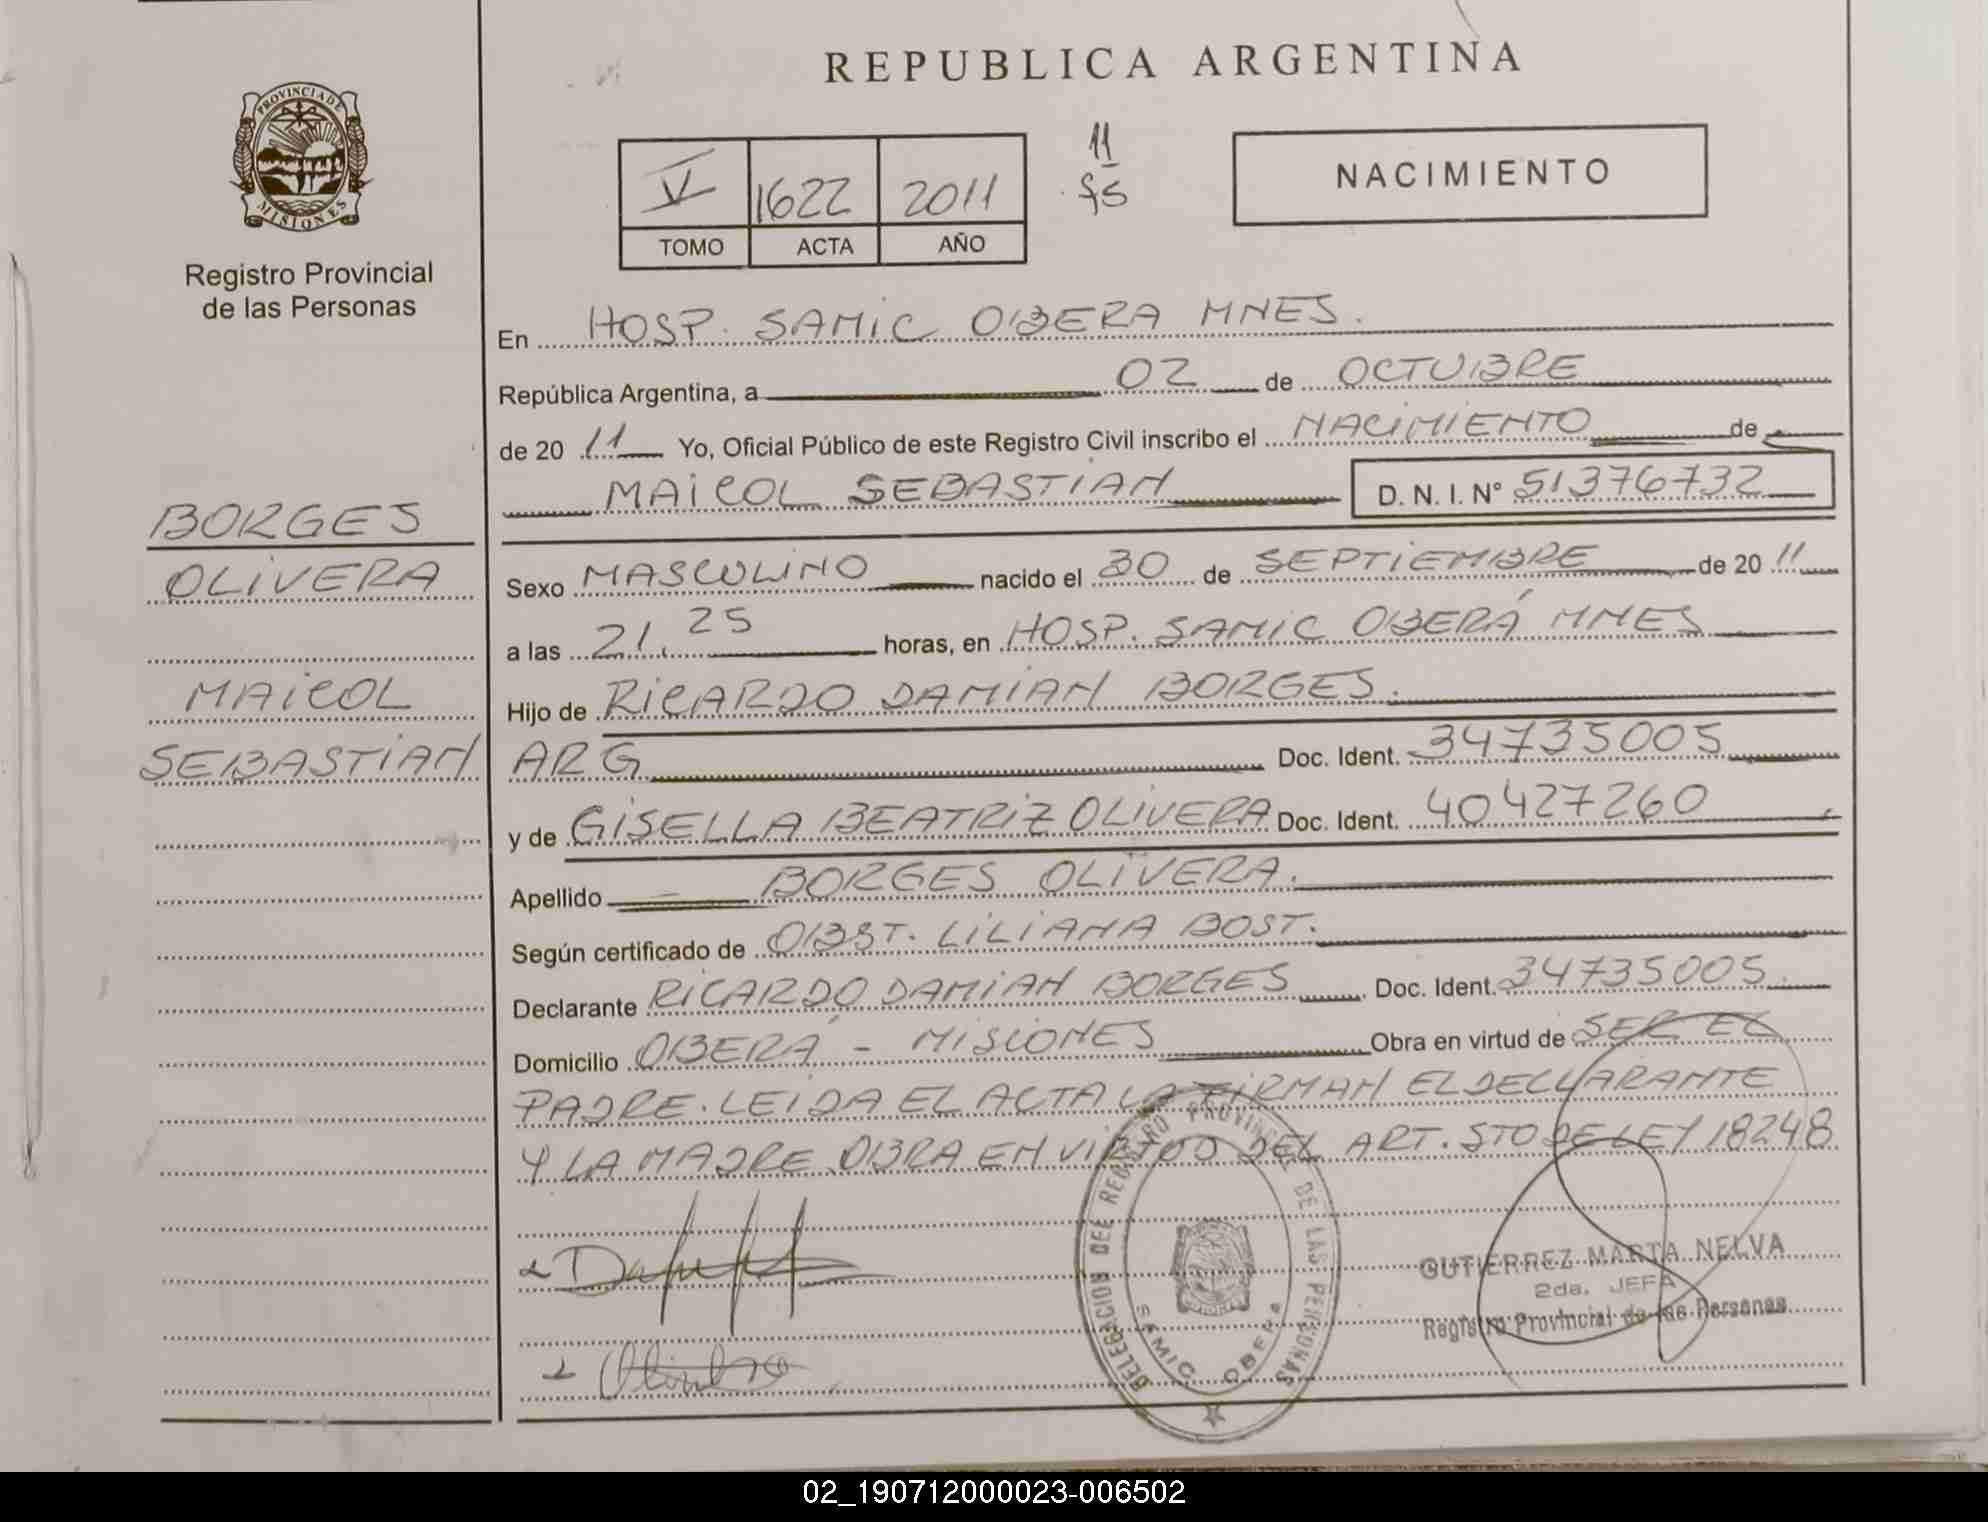 REPUBLICA ARGENTINA
PROVINCIA DE
MISIONES
Registro Provincial
de las Personas
V 1622 2011
TOMO ACTA AÑO
11
NACIMIENTO
En HOSP. SAMIC OBERA MNES.
República Argentina, a 02 de OCTUBRE
de 20 11 Yo, Oficial Público de este Registro Civil inscribo el NACIMIENTO de
MAICOL SEBASTIAN D. N. I. N° 51376732
BORGES
OLIVERA
MAICOL
SEBASTIAN
Sexo MASCULINO nacido el 30 de SEPTIEMBRE de 20 11
a las 21.25 horas, en HOSP. SAMIC OBERÁ MNES
Hijo de RICARDO DAMIAN BORGES.
ARG Doc. Ident. 34735005
y de GISELLA BEATRIZ OLIVERA Doc. Ident. 40427260
Apellido BORGES OLIVERA.
Según certificado de OBST. LILIANA BOST.
Declarante RICARDO DAMIAN BORGES Doc. Ident. 34735005
Domicilio OBERÁ - MISIONES Obra en virtud de SER EL
PADRE. LEIDA EL ACTA LA FIRMAN EL DECLARANTE
Y LA MADRE OBRA EN VIRTUD DEL ART. 5TO DE LEY 18248
DELEGACION DEL REGISTRO PROVINCIAL DE LAS PERSONAS
SAMIC OBERA
GUTIERREZ MARTA NELVA
2da. JEFA
Registro Provincial de las Personas
02_190712000023-006502